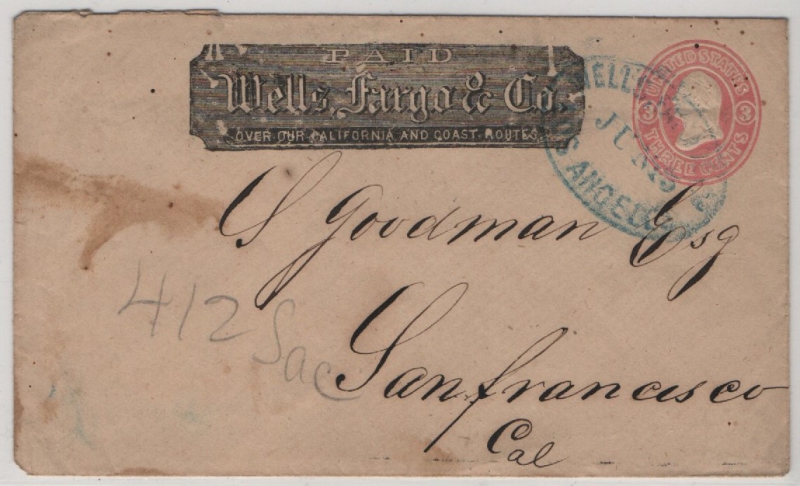 PAID
Wells, Fargo & Co.
OVER OUR CALIFORNIA AND COAST ROUTES.
UNITED STATES
3 3
THREE CENTS
JUN
LOS ANGELES
S Goodman Esq
412 Sac
Sanfrancisco
Cal